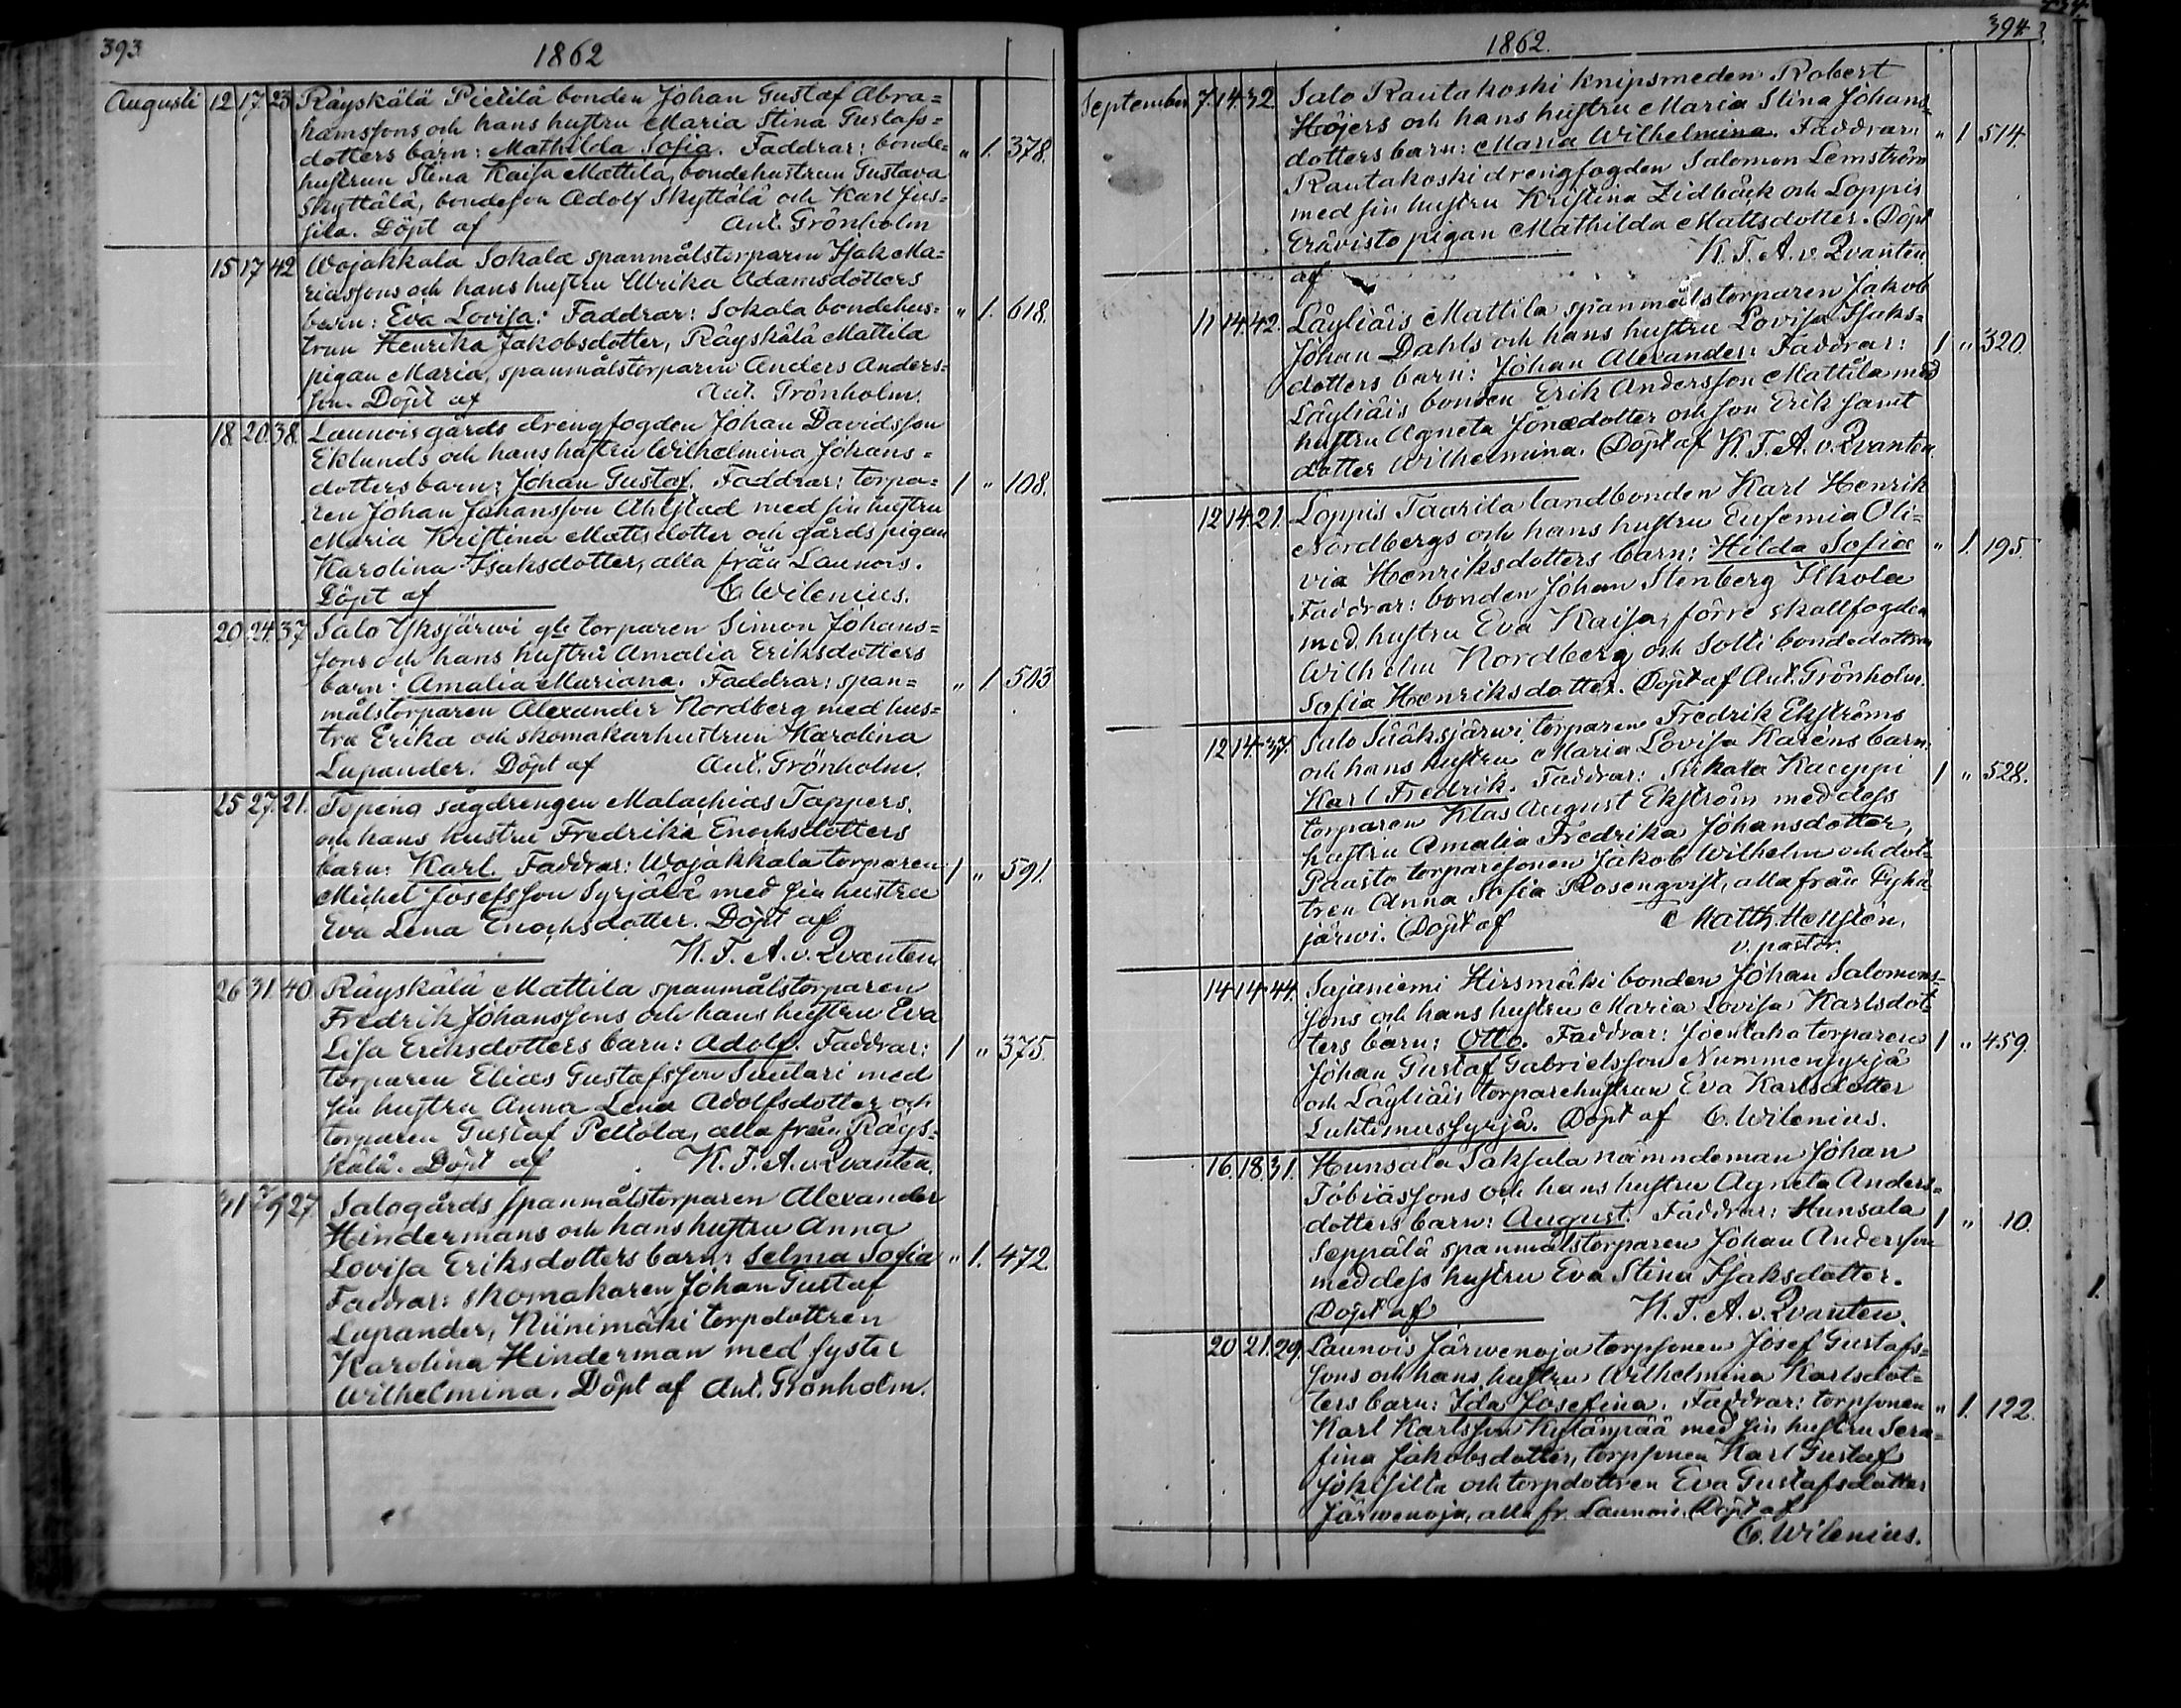 393
1862
Augusti 12 17. 23 Räyskälä Pietilä bonden Johan Gustaf Abra=
hamssons och hans hustru Maria Stina Gustafs=
dotters barn: Mathilda Sofia. Faddrar: bonde= " 1. 378.
hustrun Stina Kaisa Mattila, bondehustrun Gustava
Skyttälä, bondeson Adolf Skyttälä och Karl Jus=
sila. Döpt af Ant. Grönholm
15 17 42 Wojakkala Sokala spanmålstorparen Isak Ma=
riassons och hans hustru Ulrika Adamsdotters
barn: Eva Lovisa. Faddrar: Sokala bondehus= " 1. 618.
trun Henrika Jakobsdotter, Räyskälä Mattila
pigan Maria, spanmålstorparen Anders Anders=
son. Döpt af Ant. Grönholm.
18. 20. 38. Launois gårds drengfogden Johan Davidsson
Eklunds och hans hustru Wilhelmina Johans=
dotters barn: Johan Gustaf. Faddrar: torpa= 1 " 108.
ren Johan Johansson Ahlstad med sin hustru
Maria Kristina Mattsdotter och gårds pigan
Karolina Isaksdotter, alla från Launois.
Döpt af C. Wilenius.
20. 24. 37 Salo Yksjärwi gb torparen Simon Johans=
sons och hans hustru Amalia Eriksdotters
barn: Amalia Mariana. Faddrar: span= " 1 503
målstorparen Alexander Nordberg med hus=
tru Erika och skomakarhustrun Karolina
Lupander. Döpt af Ant. Grönholm.
25 27. 21. Topeno sågdrengen Malachias Tappers.
och hans hustru Fredrika Enochsdotters
barn: Karl. Faddrar: Wojakkala torparen 1 " 591.
Michel Josefsson Syrjälä med sin hustru
Eva Lena Enochsdotter. Döpt af
K. F. A. v. Qvanten
26 31. 40. Räyskälä Mattila spanmålstorparen
Fredrik Johanssons och hans hustru Eva
Lisa Eriksdotters barn: Adolf. Faddrar: 1 " 375.
torparen Elias Gustafsson Suutari med
sin hustru Anna Lena Adolfsdotter och
torparen Gustaf Pellola, alla från Räys=
kälä. Döpt af K. F. A. v. Qvanten.
31 7/9 27 Salogårds spanmålstorparen Alexander
Hindermans och hans hustru Anna
Lovisa Eriksdotters barn: Selma Sofia " 1. 472.
Faddrar: skomakaren Johan Gustaf
Lupander, Niinimäki torpdottren
Karolina Hinderman med syster
Wilhelmina. Döpt af Ant. Grönholm.
394.
1862.
September 7. 14. 32. Salo Rautakoski knipsmeden Robert
Höjers och hans hustru Maria Stina Johans=
dotters barn: Maria Wilhelmina. Faddrar: " 1 514.
Rautakoski drengfogden Salomon Lemström
med sin hustru Kristina Zidbäck och Loppis
Erävisto pigan Mathilda Mattsdotter. Döpt
af K. F. A. v. Qvanten
11 14. 42. Läyliäis Mattila spanmålstorparen Jakob
Johan Dahls och hans hustru Lovisa Isaks=
dotters barn: Johan Alexander. Faddrar: 1 " 320.
Läyliäis bonden Erik Andersson Mattila med
hustru Agneta Jonædotter och son Erik samt
dotter Wilhelmina. Döpt af K. F. A. v. Qvanten
12 14. 21. Loppis Taarila landbonden Karl Henrik
Nordbergs och hans hustru Eufemia Oli=
via Henriksdotters barn: Hilda Sofia " 1. 195.
Faddrar: bonden Johan Stenberg Ilkola
med hustru Eva Kaisa, förre skallfogden
Wilhelm Nordberg och Solli bondedottren
Sofia Henriksdotter. Döpt af Ant. Grönholm.
12 14. 37. Salo Sääksjärwi torparen Fredrik Ekströms
och hans hustru Maria Lovisa Karéns barn:
Karl Fredrik. Faddrar: Kauppi 1 " 528.
torparen Klas August Ekström med dess
hustru Amalia Fredrika Johansdotter,
Paasto torparesonen Jakob Wilhelm och dot=
tren Anna Sofia Rosenqvist, alla från
järwi. Döpt af Matth. Hellstén,
v. pastor.
14 14 44. Sajaniemi Hirsmäki bonden Johan Salomons=
sons och hans hustru Maria Lovisa Karlsdot=
ters barn: Otto. Faddrar: Joentaka torparen 1 " 459.
Johan Gustaf Gabrielsson Nummensyrjä
och Läyliäis torparehustrun Eva Karlsdotter
Luhtimussyrjä. Döpt af C. Wilenius.
16. 18. 31. Hunsala Saksala nämndeman Johan
Tobiassons och hans hustru Agneta Anders=
dotters barn: August. Faddrar: Hunsala 1 " 10.
Seppälä spanmålstorparen Johan Andersson
med dess hustru Eva Stina Isaksdotter.
Döpt af K. F. A. v. Qvanten.
20 21. 29. Launois Järwenoja torpsonen Josef Gustafs=
sons och hans hustru Wilhelmina Karlsdot=
ters barn: Ida Josefina. Faddrar: torpsonen " 1. 122.
Karl Karlsson Kylänpää med sin hustru Sera=
fina Jakobsdotter, torpsonen Karl Gustaf
Jokisilta och torpdottren Eva Gustafsdotter
Järwenoja, alla fr. Launois. Döpt af
C. Wilenius.
1.